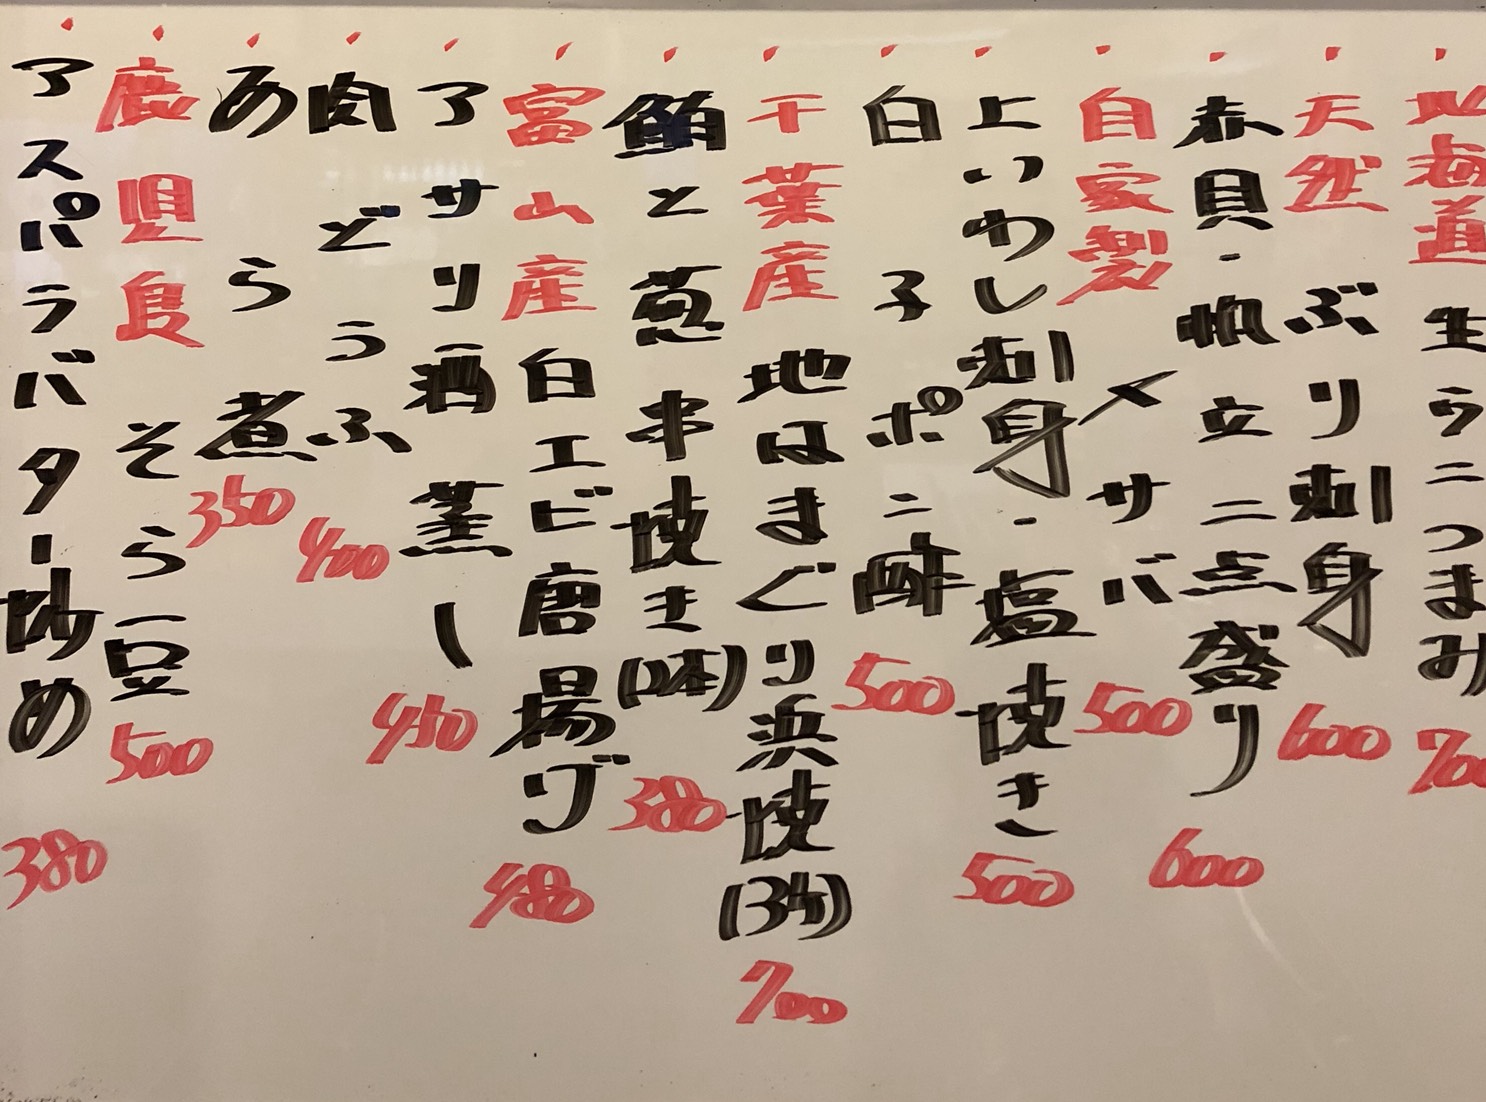 北海道 生ウニつまみ 700
天然 ぶり刺身 600
赤貝・帆立二点盛り 600
自家製 〆サバ 500
上いわし刺身・塩焼き 500
白子ポン酢 500
千葉産 地はまぐり浜焼(3ケ) 700
鮪と葱串焼き(2本) 380
富山産 白エビ唐揚げ 480
アサリ酒蒸し 450
肉どうふ 400
あら煮 350
鹿児島 そら豆 500
アスパラバター炒め 380